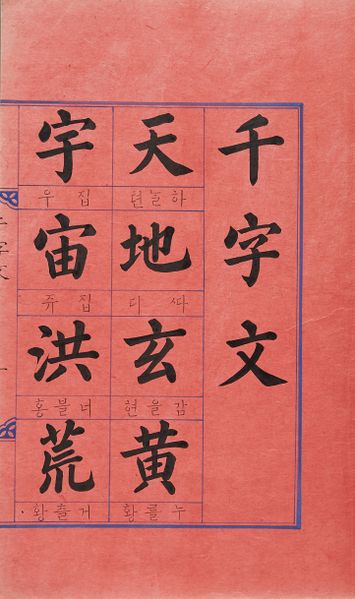 千字文
天
하늘텬
地
ᄯᅡ디
玄
감을현
黃
누를황
宇
집우
宙
집쥬
洪
너블홍
荒
거츨황